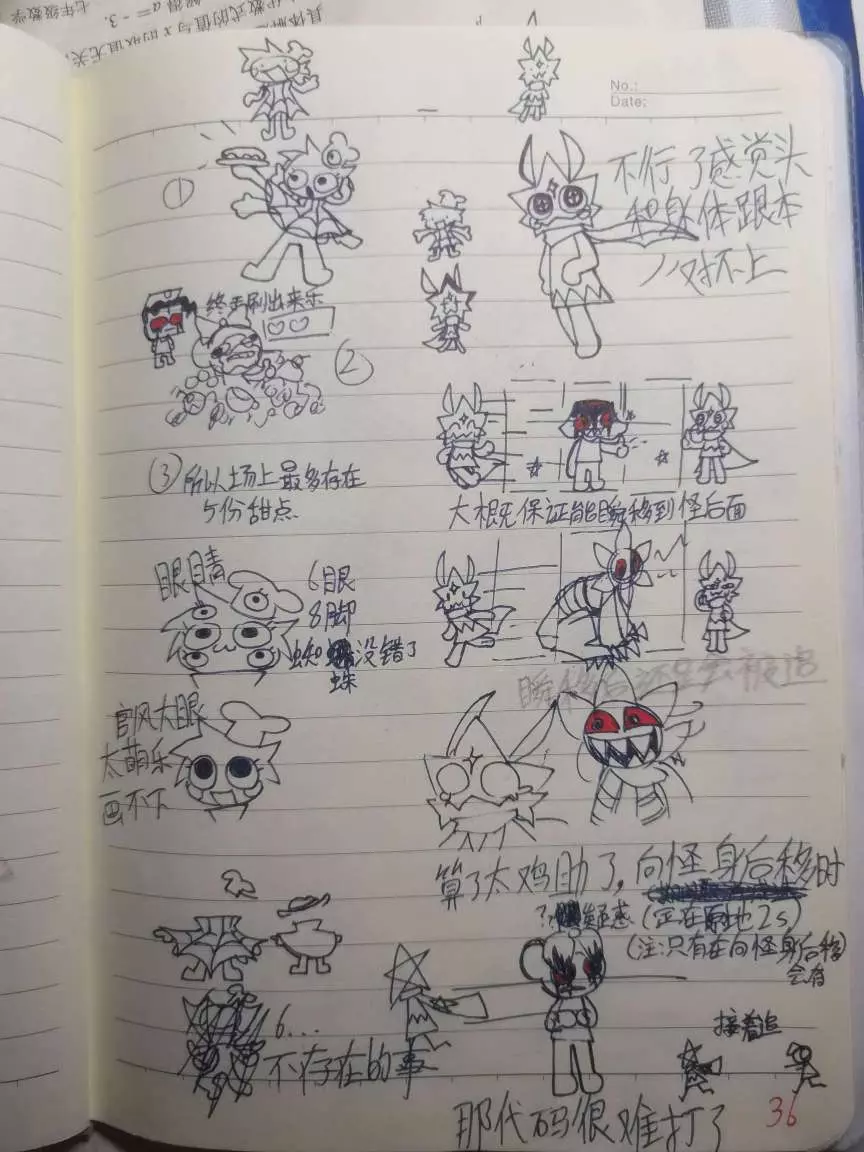 具体解
式的值与x的取值无关,
解得a=-3.
七年级数学
No.:
Date:
①
不行了感觉头
和身体跟本
对不上
终于刷出来乐
②
③所以场上最多存在
5份甜点
大概保证能瞬移到怪后面
眼睛
6眼
8脚
蜘蛛没错了
瞬移后还是会被追
官风大眼
太萌乐
画不下
算了太鸡肋了,向怪身后移时
?疑惑(定在原地2s)
(注:只有在向怪身后移
会有
6...
不存在的事
接着追
那代码很难打了
36